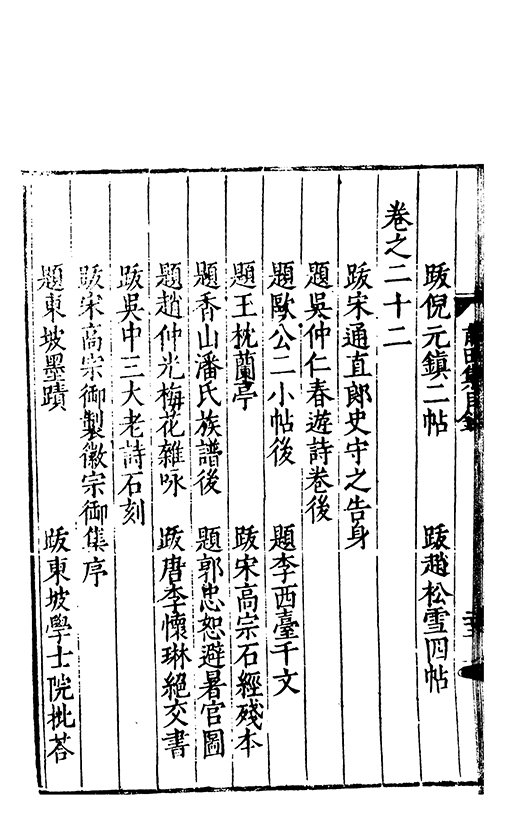 跋倪元鎮二帖　跋趙松雪四帖
卷之二十二
跋宋通直郎史守之告身
題吳仲仁春遊詩卷後
題歐公二小帖後　題李西臺千文
題王枕蘭亭　跋宋高宗石經殘本
題香山潘氏族譜後　題郭忠恕避暑官圖
題趙仲光梅花雜咏　跋唐李懷琳絕交書
跋吳中三大老詩石刻
跋宋高宗御製徽宗御集序
題東坡墨蹟　跋東坡學士院批荅